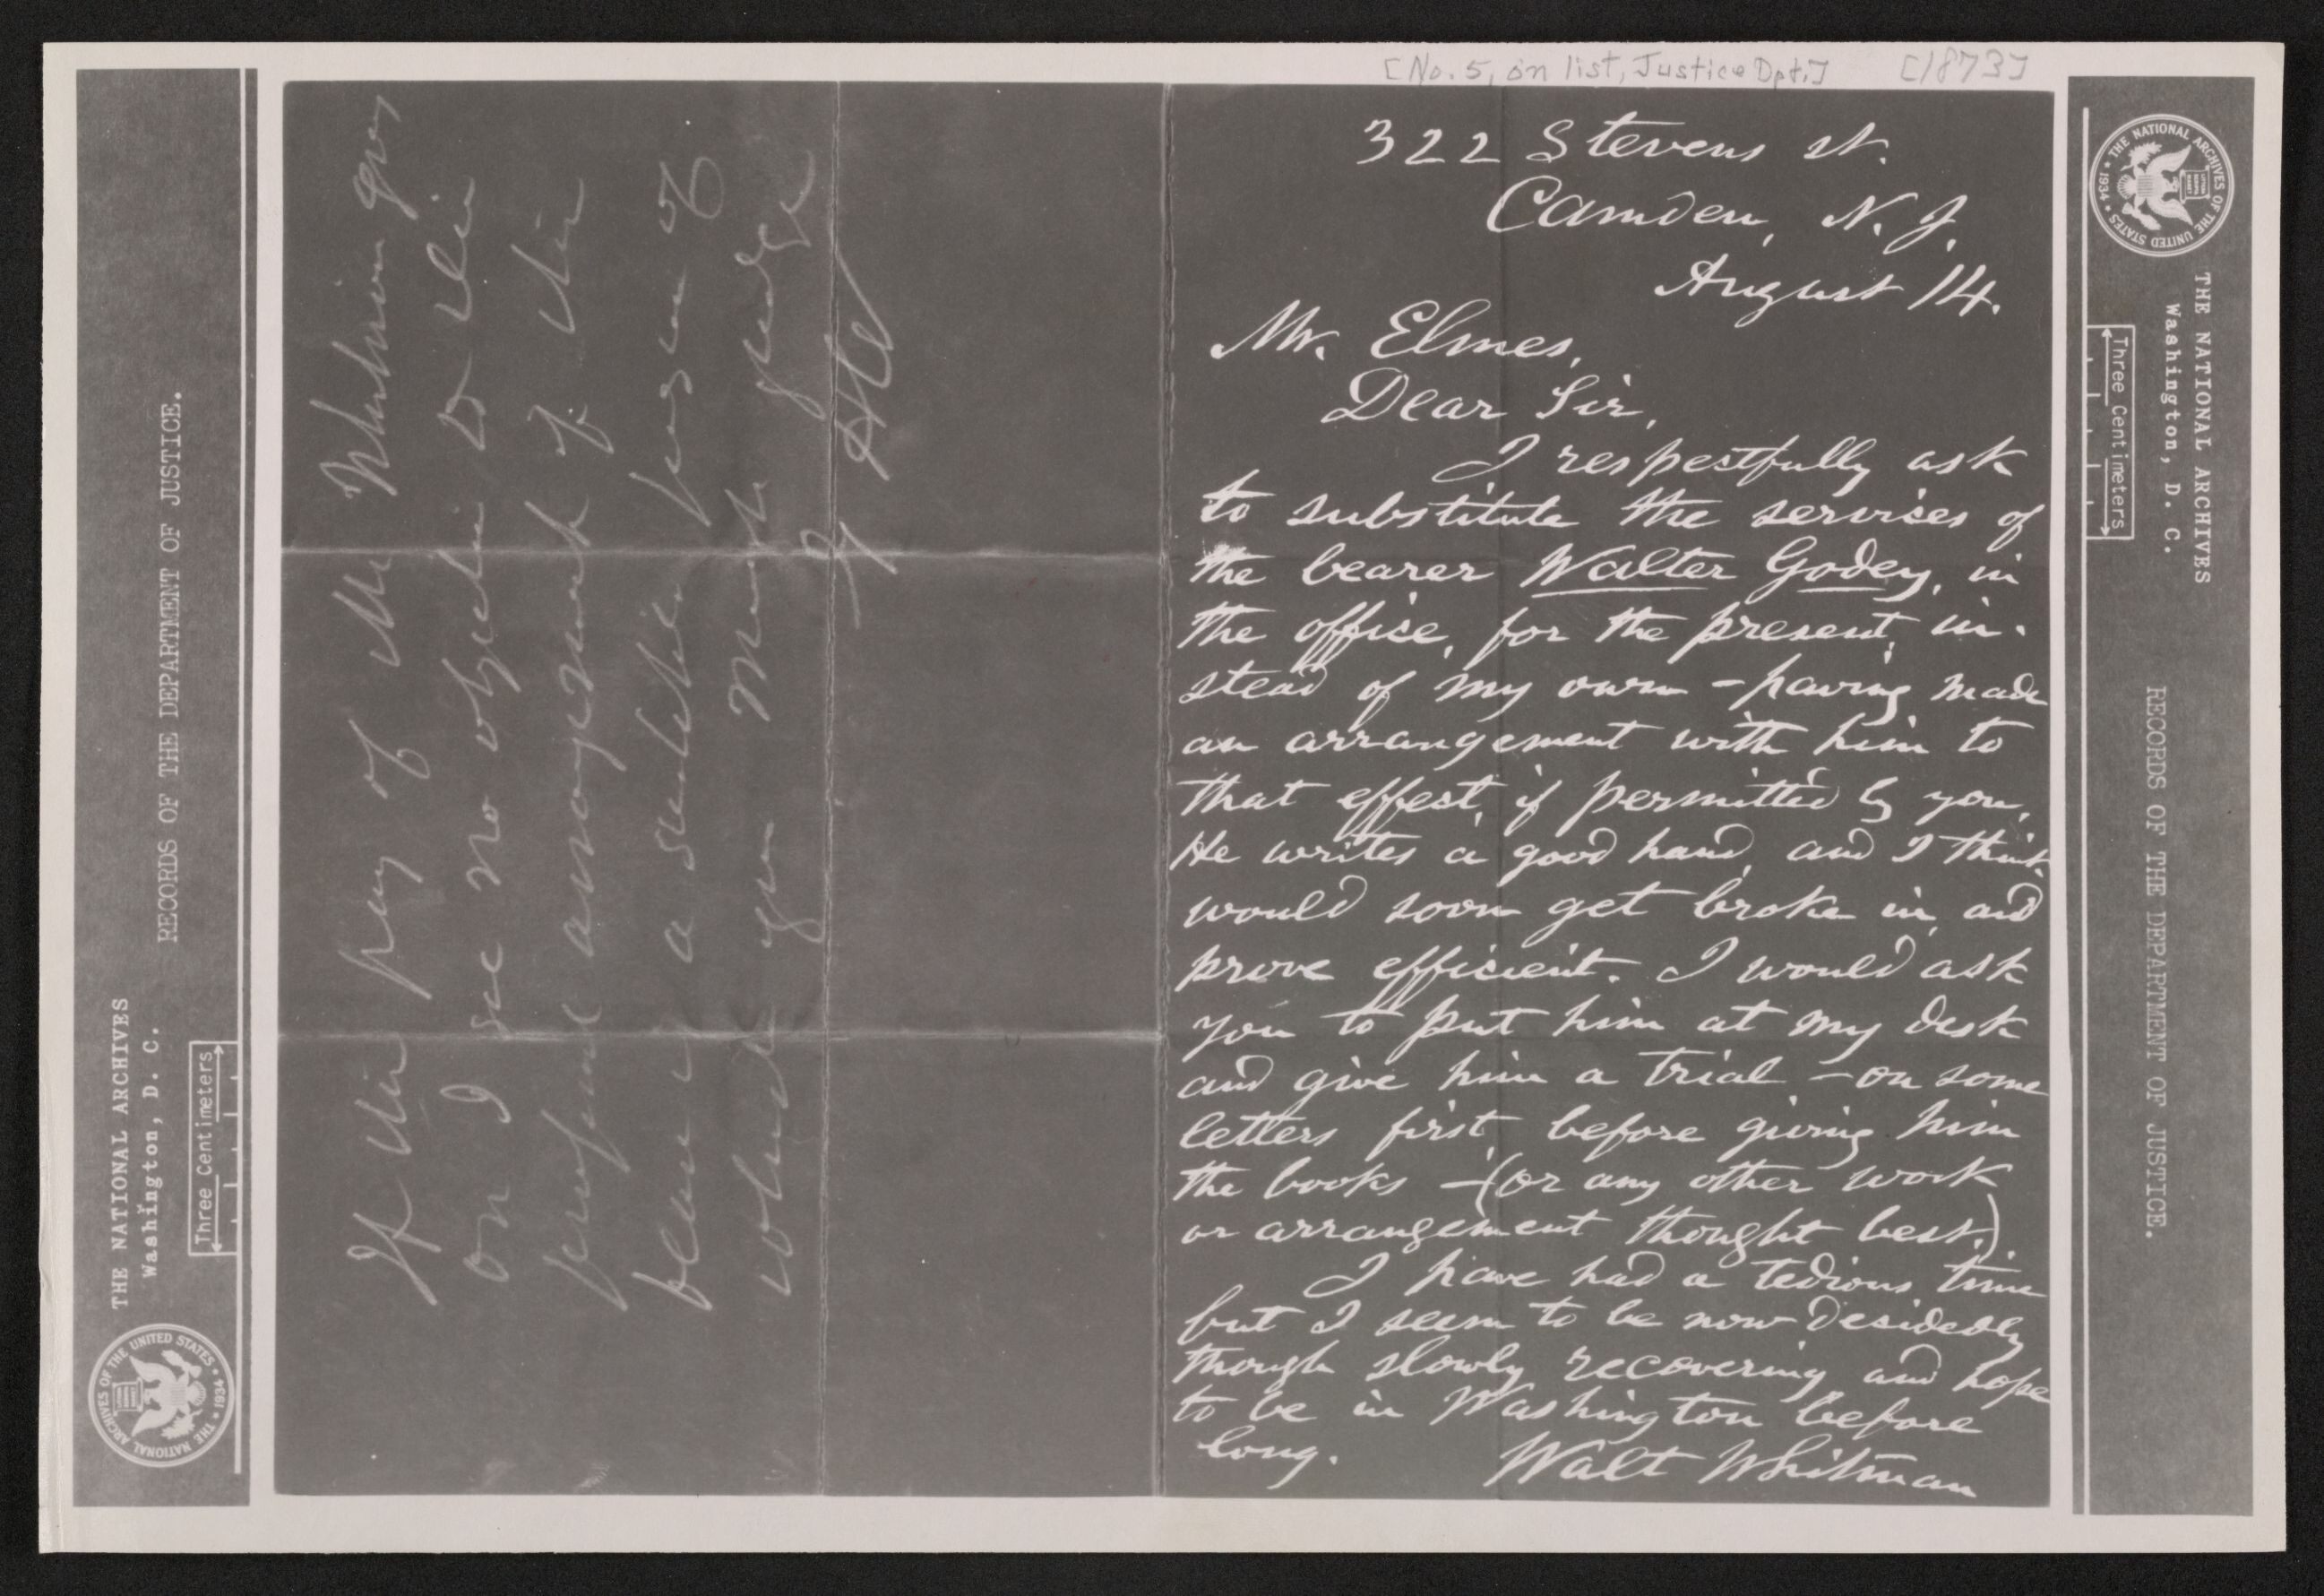 [No. 5, on list, Justice Dpt.] [1873]
322 Stevens st.
Camden, N. J.
August 14.
Mr. Elmes,
Dear Sir,
I respectfully ask
to substitute the services of
the bearer Walter Godey, in
the office, for the present, in-
stead of my own - having made
an arrangement with him to
that effect, if permitted by you.
He writes a good hand, and I think
would soon get broke in, and
prove efficient. I would ask
you to put him at my desk
and give him a trial - on some
letters first, before giving him
the books - (or any other work
or arrangement thought best.)
I have had a tedious time
but I seem to be now decidedly
though slowly recovering and hope
to be in Washington before
long.
Walt Whitman
If the pay of Mr Whitman goes
on I see no objection to the
of the
a substitute
which you must judge
THE NATIONAL ARCHIVES
Washington, D. C.
RECORDS OF THE DEPARTMENT OF JUSTICE.
Three Centimeters
THE NATIONAL ARCHIVES OF THE UNITED STATES • 1934 •
THE NATIONAL ARCHIVES
Washington, D. C.
RECORDS OF THE DEPARTMENT OF JUSTICE.
Three Centimeters
THE NATIONAL ARCHIVES OF THE UNITED STATES • 1934 •